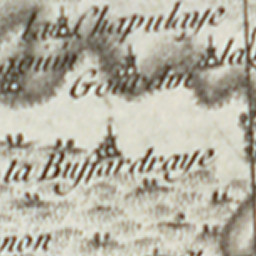 la Chapulaye
gouin
la
Gourdin
la Buffardraye
non